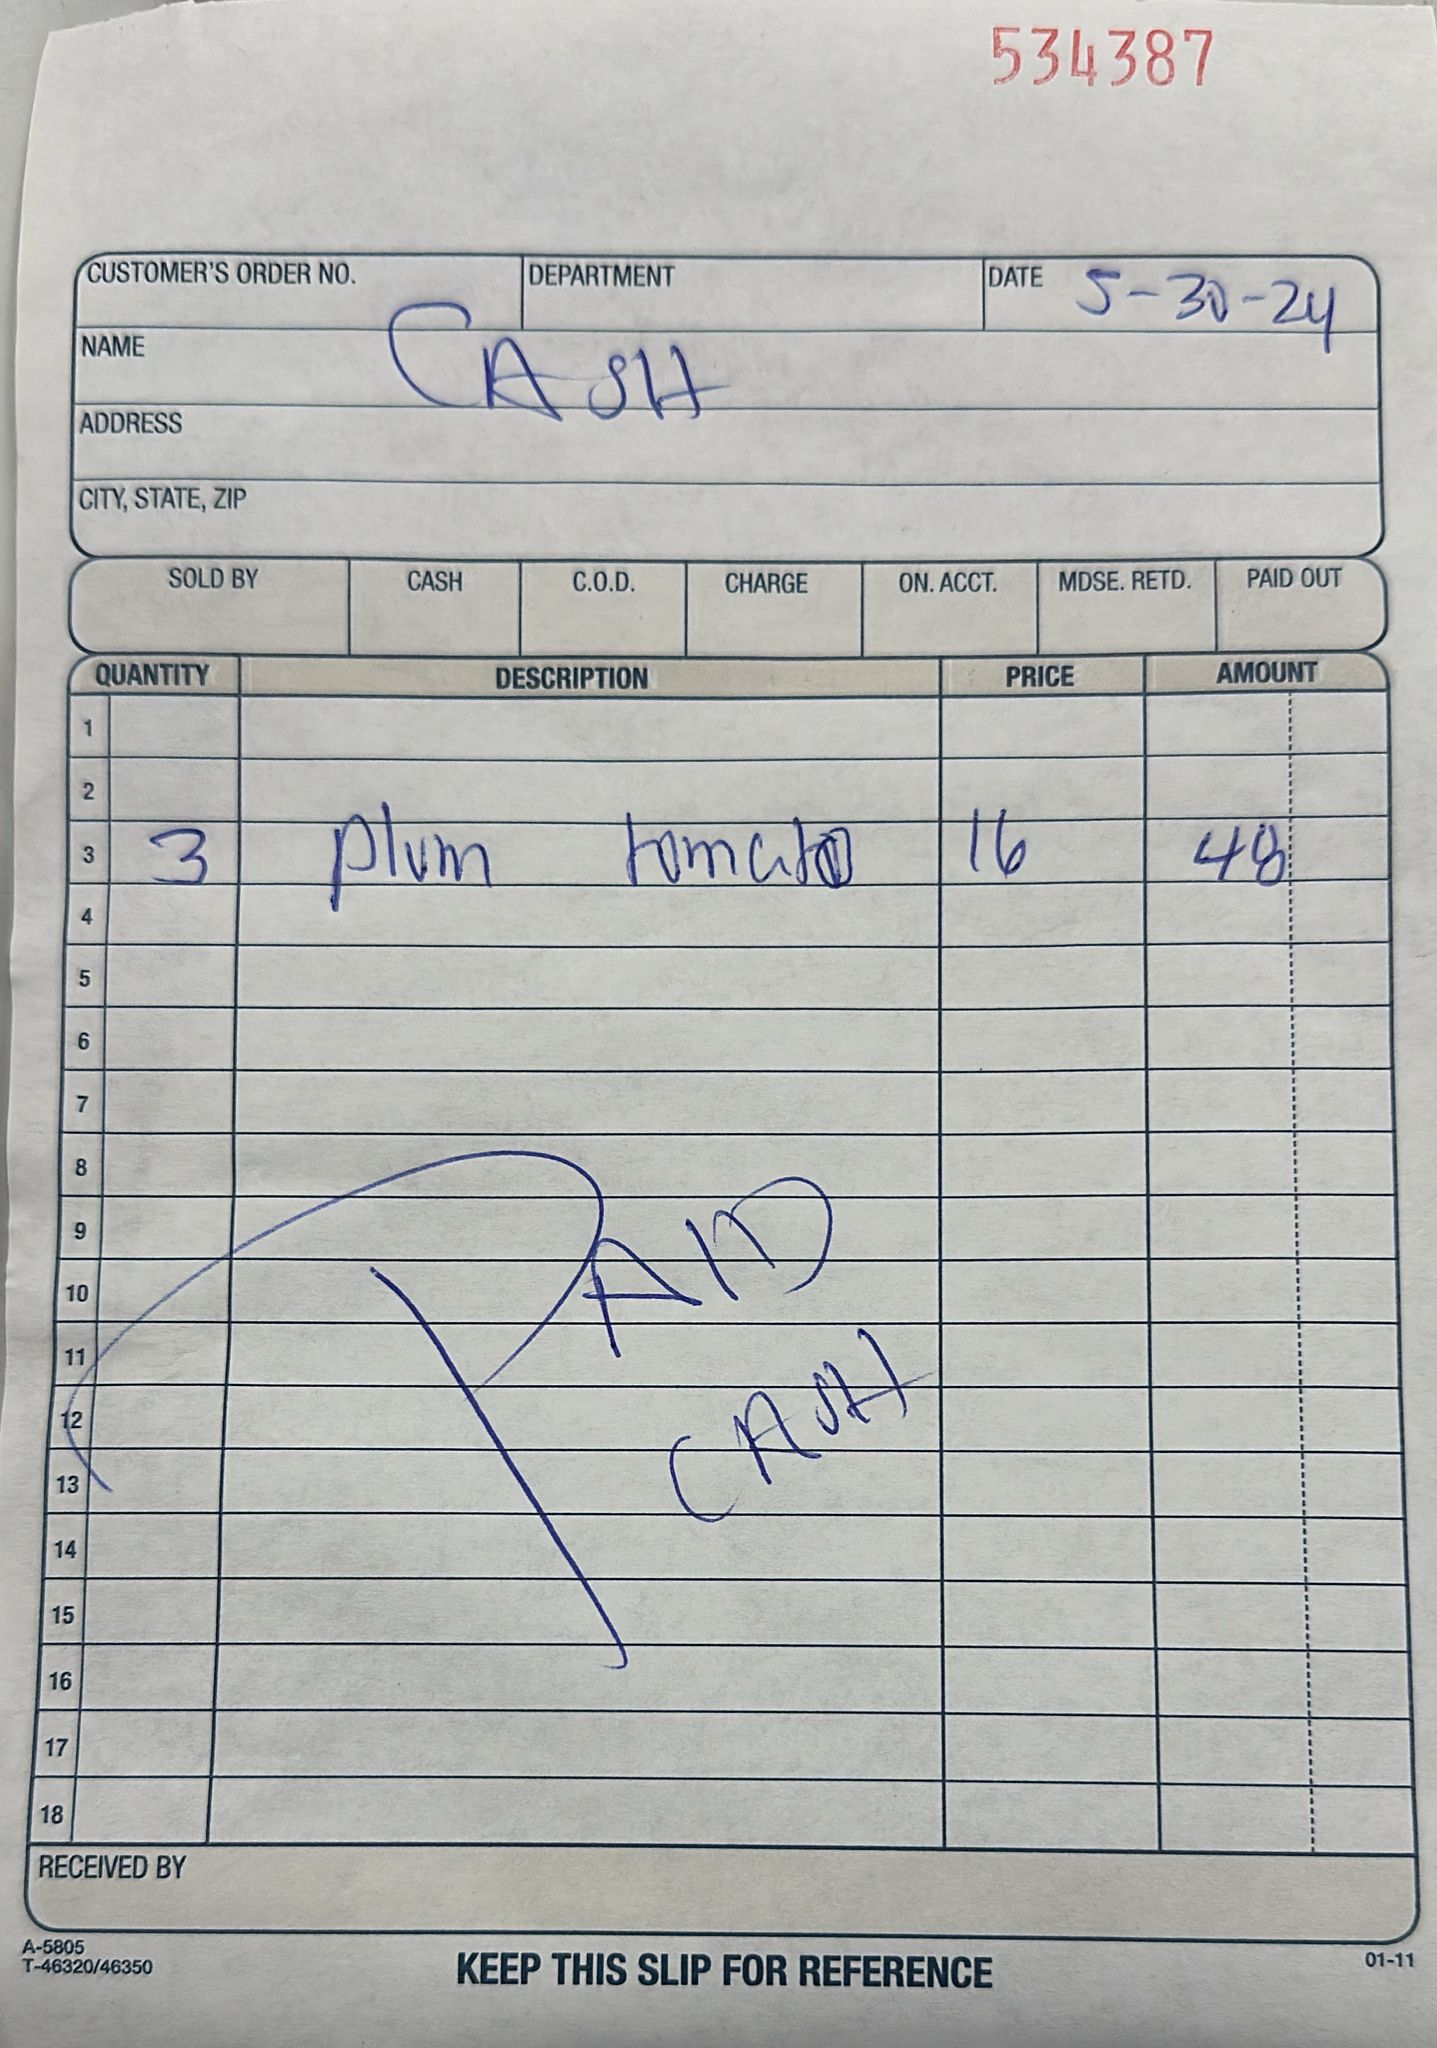 534387
CUSTOMER'S ORDER NO. DEPARTMENT DATE 5-30-24
NAME CASH
ADDRESS
CITY, STATE, ZIP
SOLD BY CASH C.O.D. CHARGE ON. ACCT. MDSE. RETD. PAID OUT
QUANTITY DESCRIPTION PRICE AMOUNT
1
2
3 3 plum tomato 16 48
4
5
6
7
8
9
10
11
12
13
14
15
16
17
18
PAID
CASH
RECEIVED BY
A-5805
T-46320/46350
KEEP THIS SLIP FOR REFERENCE
01-11